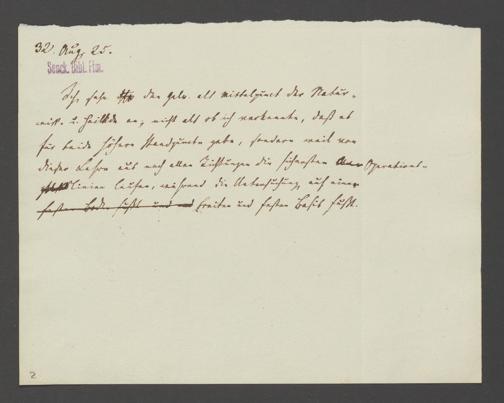 32. Aug. 25.
Senck. Bibl. Ffm.
Ich sehe den galv. als Mittelpunct der Natur-
wiss. u. Heilkde an, nicht als ob ich verkennte, daß es
für beide höhere Standpuncte gebe, sondern weil von
dieser Lehre aus nach allen Richtungen die sichersten Operations-
linien laufen, während die Untersuchung auf einer
festen Boden fußt und breiten und festen Basis fußt.
2